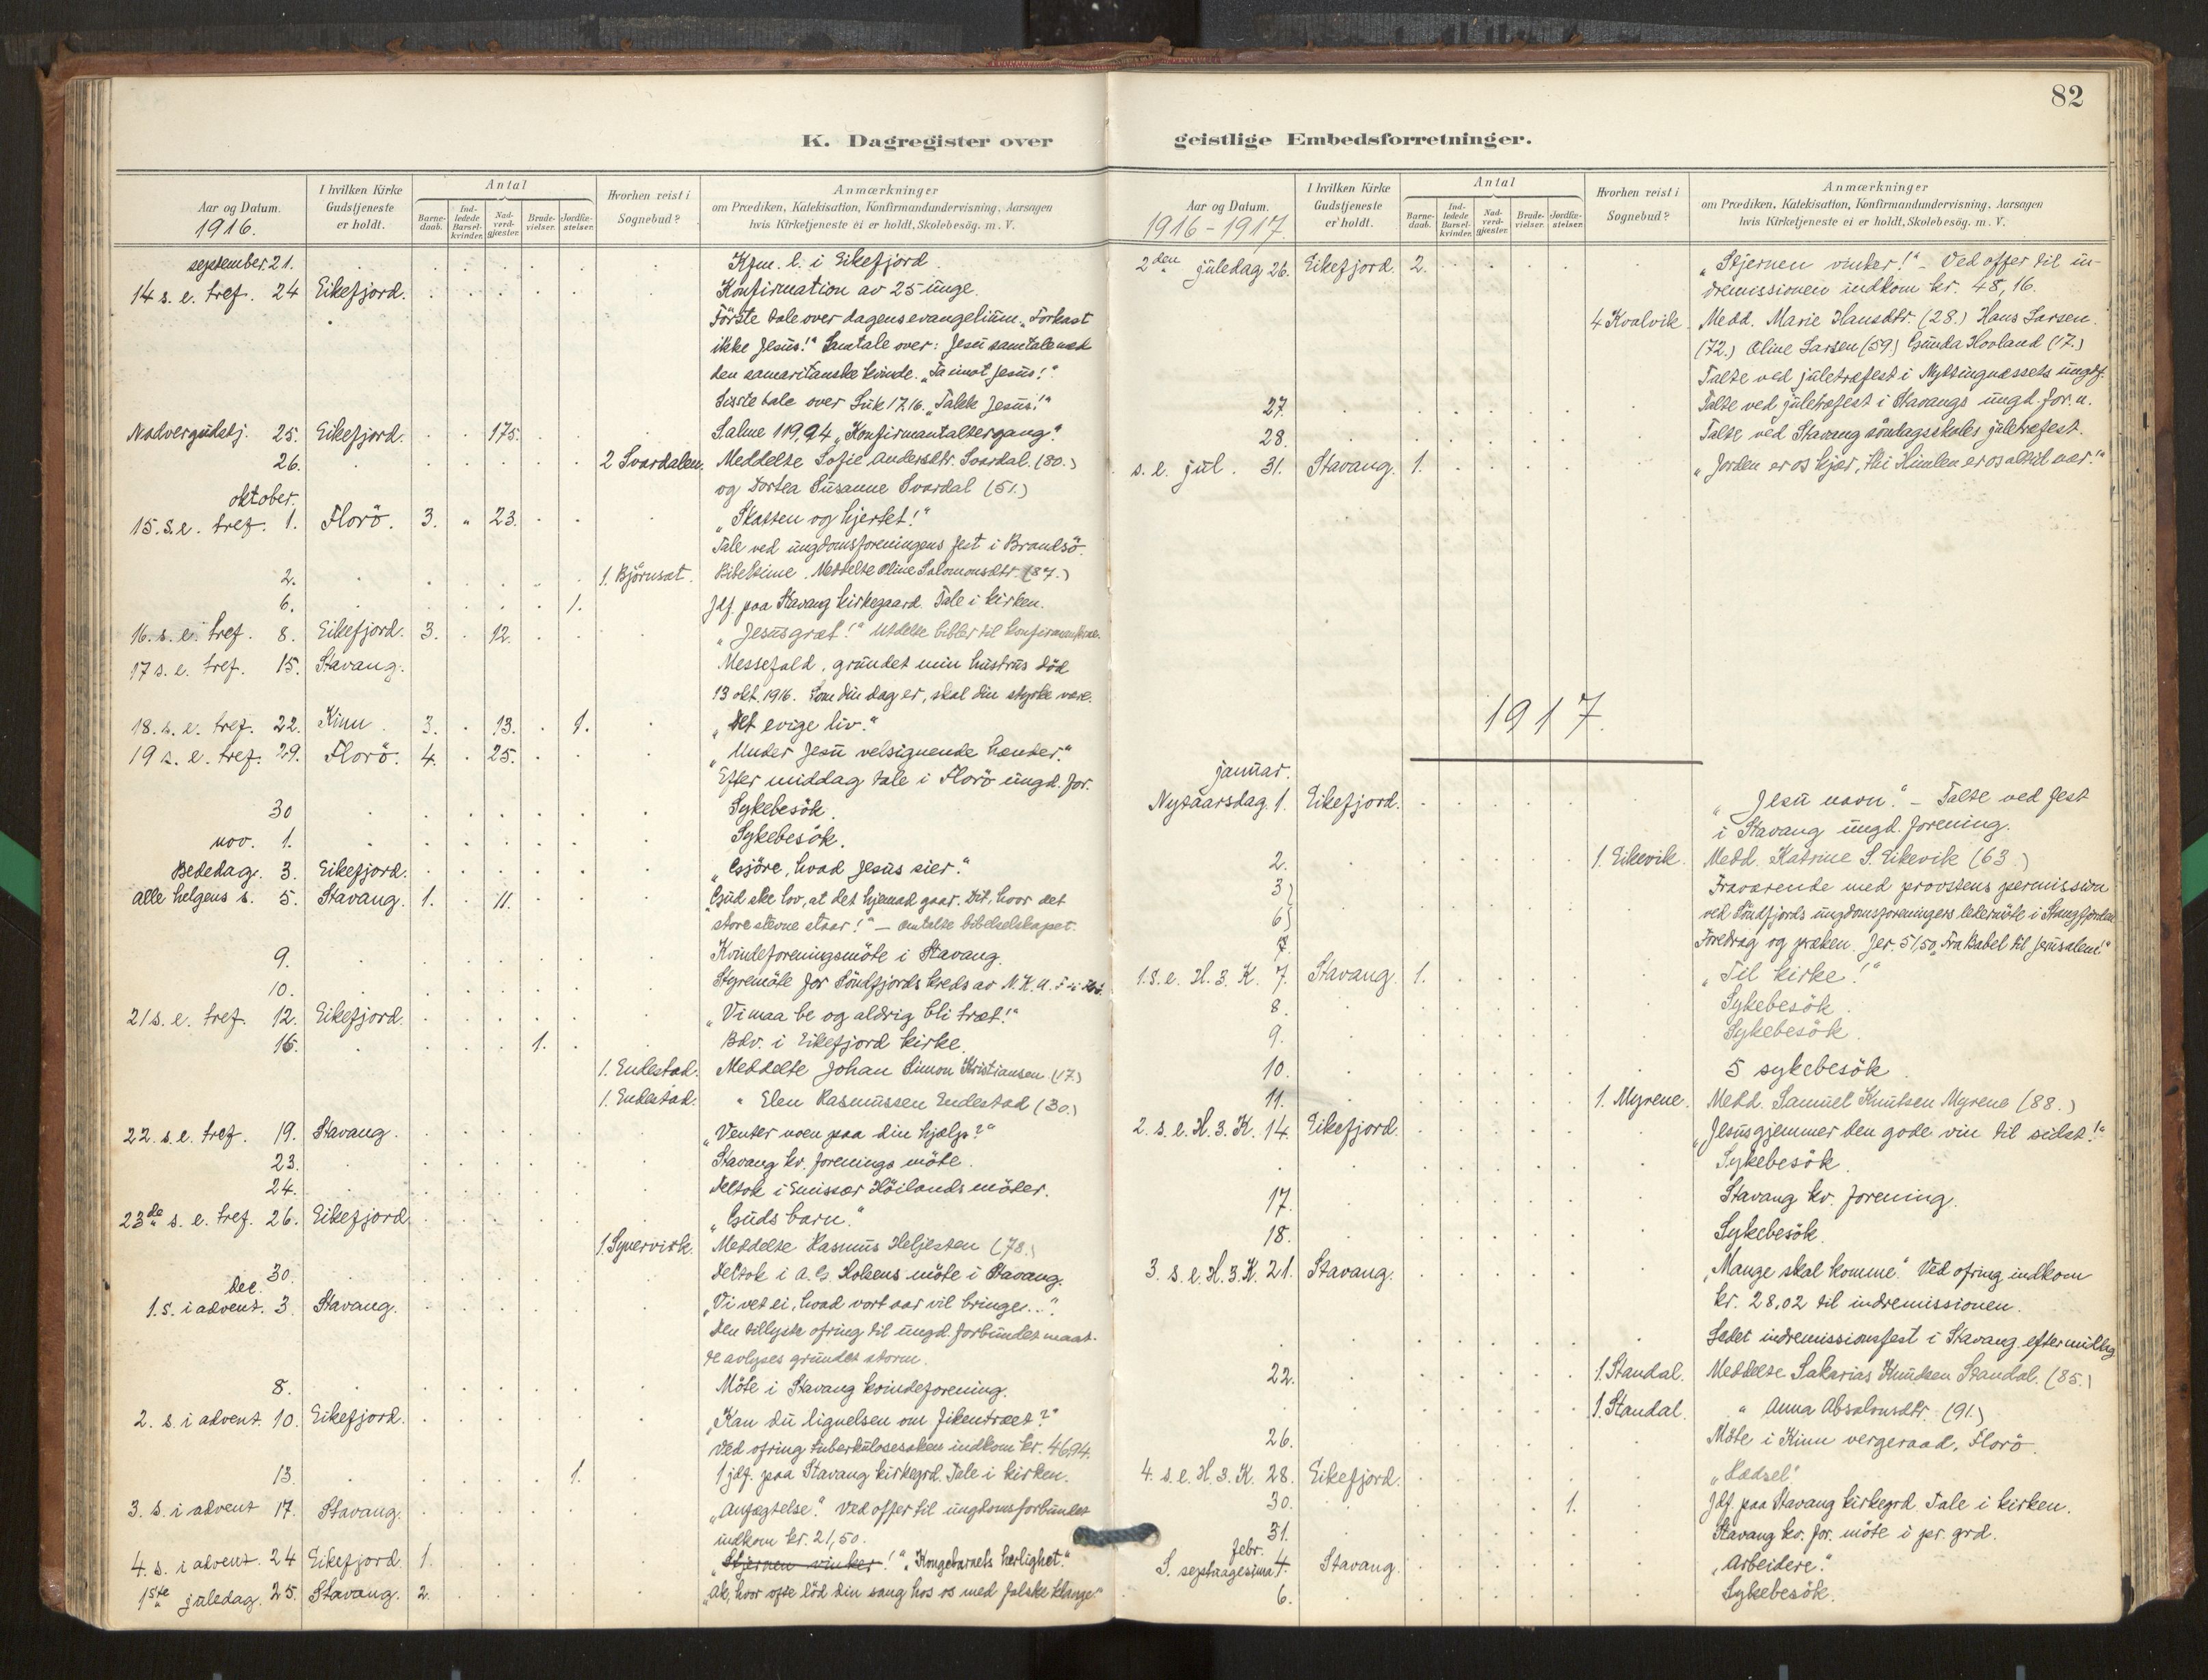 82
K. Dagregister over
geistlige Embedsforretninger.
Aar og Datum.
1916.
I hvilken Kirke Gudstjeneste er holdt.
Antal
Barne-daab.
Ind-ledede Barsel-kvinder.
Nad-verd-gjæster.
Brude-vielser.
Jordfæ-stelser.
Hvorhen reist i Sognebud?
Anmærkninger
om Prædiken, Katekisation, Konfirmandundervisning, Aarsagen
hvis Kirketjeneste ei er holdt, Skolebesøg. m. V.
september. 21. Kfm. l. i Eikefjord.
14 s. e. tref. 24 Eikefjord. Konfirmation av 25 unge.
Første tale over dagens evangelium. "Forkast
ikke Jesus!" Samtale over: Jesu samtale med
den samaritanske kvinde. "Ta imot Jesus!"
Siste tale over Luk 17.16. "Takk Jesus!"
Nadvergudstj. 25. Eikefjord. 175. Salme 119,94 "Konfirmantaltergang".
26. 2 Svardalen. Meddelte Sofie Andersdtr. Svardal. (80.)
og Dortea Susanne Svardal (51.)
oktober.
15. s. e. tref. 1. Florö. 3. " 23. "Skatten og hjertet!"
Tale ved ungdomsforeningens fest i Brandsö.
2. 1. Björnsæt. Bibeltime. Meddelte Oline Salomonsdtr. (87.)
6. 1. Jdf. paa Stavang kirkegaard. Tale i kirken.
16. s. e. tref. 8. Eikefjord. 3. 12. "Jesusgraat!" Utdelte bibler til konfirmantene.
17 s. e. tref. 15. Stavang. Messefald, grundet min hustrus död
13 okt. 1916. Som din dag er, skal din styrke være.
18. s. e. tref. 22. Kinn. 3. 13. 1. "Det evige liv."
19 s. e. tref. 29. Florö. 4. 25. "Under Jesu velsignende hænder."
Efter middag tale i Florö ungd. for.
30 Sykebesök.
nov. 1. Sykebesök.
Bededag. 3. Eikefjord. "Gjöre, hvad Jesus sier."
Alle helgens s. 5. Stavang. 1. 11. "Gud ske lov, at det hjemad gaar. Dit, hvor det
store stevne staar!" — Omtalte bibelselskapet.
9. Kvindeforeningsmöte i Stavang.
10. Styremöte for Söndfjords kreds av N.K.U.F.
21 s. e. tref. 12. Eikefjord. "Vi maa be og aldrig bli træt!"
16. 1. Bdv. i Eikefjord kirke.
1. Endestad. Meddelte Johan Simon Kristiansen (17.)
1. Endestad. " Elen Rasmussen Endestad (30.)
22. s. e. tref. 19. Stavang. "Venter noen paa din hjælp?"
23. Stavang kv. forenings möte.
24. Deltok i Emissær Höilands möter.
23de s. e. tref. 26. Eikefjord. "Guds barn."
1. Synervisk. Meddelte Rasmus Heljesten (78.)
30. Deltok i A. G. Holsens möte i Stavang.
dec.
1. s. i advent. 3. Stavang. "Vi vet ei, hvad vort aar vil bringe..."
Den tillyste ofring til ungd. forbundet maat-
te avlyses grundet storm.
8. Möte i Stavang kvindeforening.
2. s. i advent. 10. Eikefjord. "Kan du lignelsen om fikentræet?"
Ved ofring tuberkulosesaken indkom kr. 46,94.
13. 1. 1 jdf. paa Stavang kirkegrd. Tale i kirken.
3. s. i advent 17. Stavang. "Anfægtelse". Ved offer til ungdomsforbundet
indkom kr. 21,50.
4. s. i advent. 24 Eikefjord. 1. "Stjernen vinker!" "Kongebarnets herlighet."
1ste juledag. 25. Stavang. 2. "Ak, hvor ofte löd din sang hos os med falske klange."
Aar og Datum.
1916-1917.
I hvilken Kirke Gudstjeneste er holdt.
Antal
Barne-daab.
Ind-ledede Barsel-kvinder.
Nad-verd-gjæster.
Brude-vielser.
Jordfæ-stelser.
Hvorhen reist i Sognebud?
Anmærkninger
om Prædiken, Katekisation, Konfirmandundervisning, Aarsagen
hvis Kirketjeneste ei er holdt, Skolebesög. m. V.
2den juledag 26. Eikefjord. 2. "Stjernen vinker!" - Ved offer til in-
dremissionen indkom kr. 48,16.
4 Kvalvik. Medd. Marie Hansdtr. (28.) Hans Larsen.
(72.) Oline Larsen (59) Gunda Hovland (17.)
Talte ved juletræfest i Nyttingnæssets ungdf.
27. Talte ved juletræfest i Stavangs ungd. for. u.
28. Talte ved Stavang söndagsskoles juletræfest.
s. e. jul. 31. Stavang. 1. "Jorden er os kjær, thi Himlen er os altid nær."
1917.
januar.
Nytaarsdag. 1. Eikefjord. "Jesu navn." - Talte ved fest
i Stavang ungd. forening.
2. 1. Eikevik. Medd. Katrine S. Eikevik (63.)
3) Fraværende med provstens permission
6) ved Söndfjords ungdomsforeningers ledermöte i Stangfjorden
7. Foredrag og præken. Jer. 51,50 "Fra Babel til Jerusalem!"
1. s. e. H. 3. K. 7. Stavang. 1. "Til kirke!"
8. Sykebesök.
9. Sykebesök.
10. 5 sykebesök.
11. 1. Myrene. Medd. Samuel Knutsen Myrene (88.)
2. s. e. H. 3. K. 14. Eikefjord. "Jesus gjemmer den gode vin til sidst!"
Sykebesök.
17. Stavang kv. forening.
18. Sykebesök.
3. s. e. H. 3. K. 21. Stavang. "Mange skal komme." Ved ofring indkom
kr. 28,02 til indremissionen.
Ledet indremissionsfest i Stavang eftermiddag
22. 1. Standal. Meddelte Sakarias Knudsen Standal. (85.)
1. Standal. " Anna Absalonsdtr. (91.)
26. Möte i Kinn vergeraad, Florö.
4. s. e. H. 3. K. 28. Eikefjord. "Rædsel."
30. 1. Jdf. paa Stavang kirkegrd. Tale i kirken.
31. Stavang kv. for. möte i pr. grd.
febr.
S. septuagesima 4. Stavang. "Arbeidere."
6. Sykebesök.